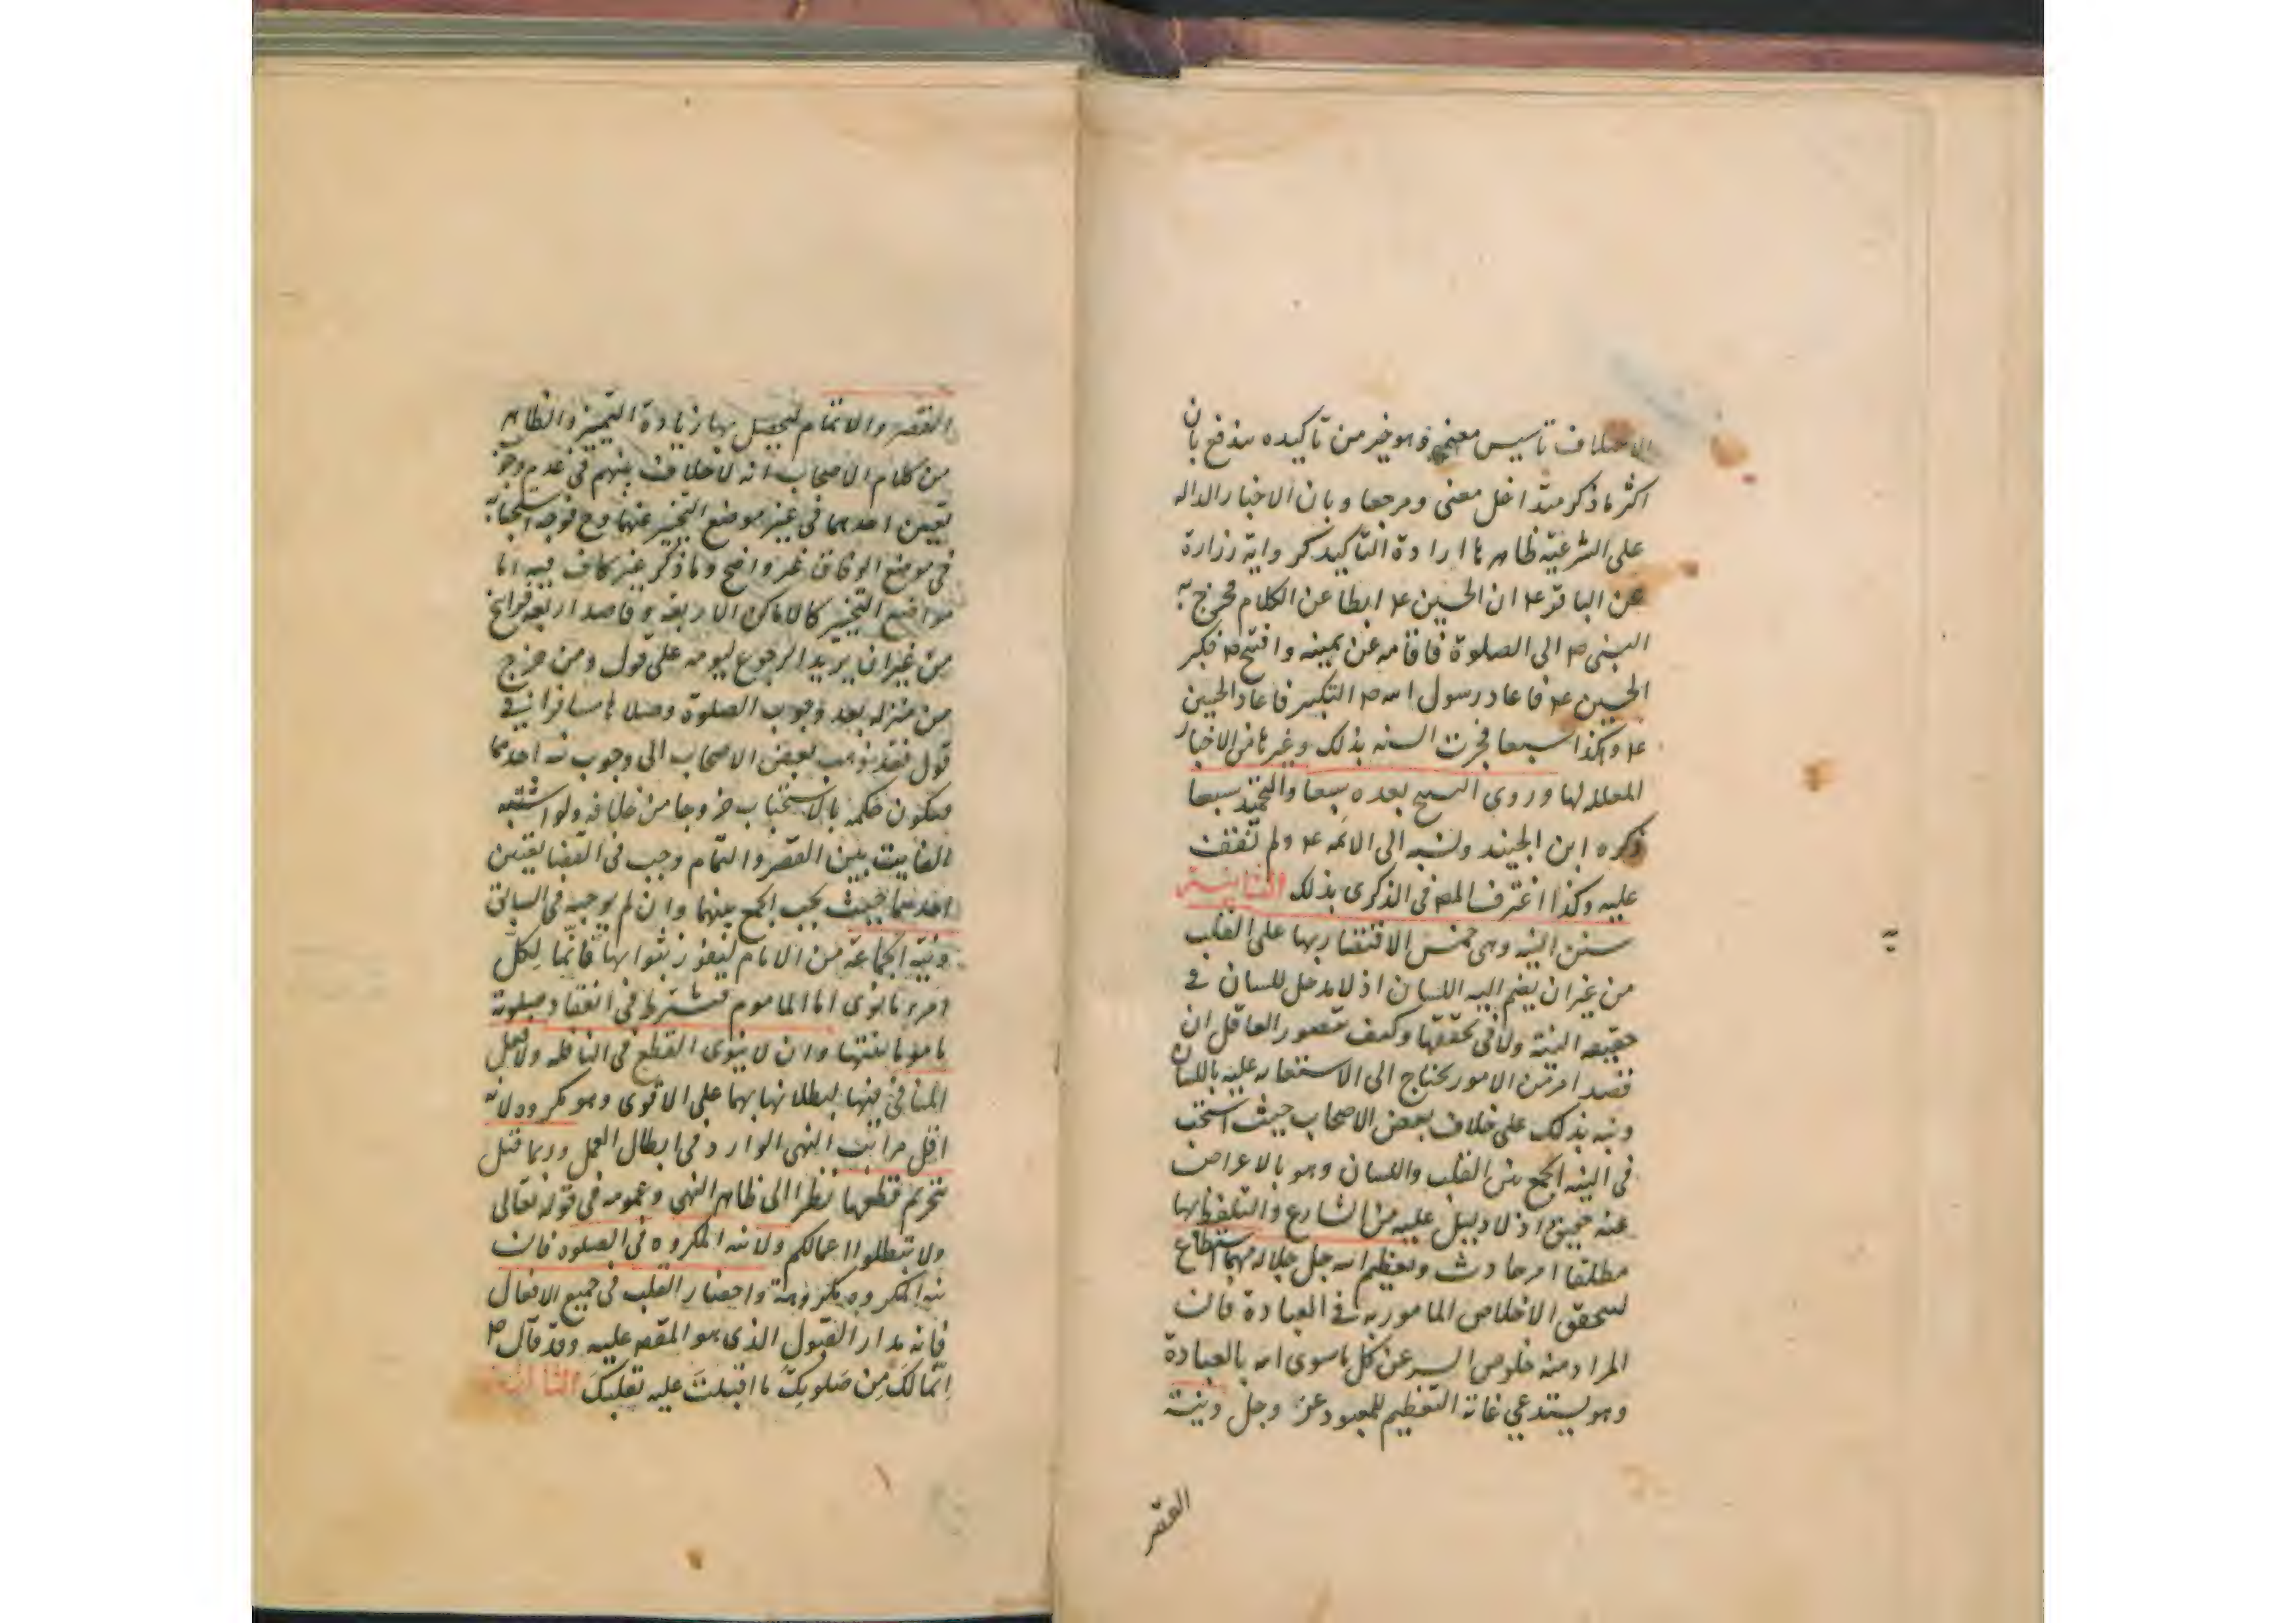 تأسيس معنى وهو خير من تأكيده يندفع بان
اكثر ما ذكر متداخل معنى ومرجعا وبان الاخبار الداله
على الشرعيه ظاهرها ارادة التأكيد كرواية زرارة
عن الباقر ع ان الحسين ع ابطا عن الكلام فخرج به
النبى ص الى الصلوة فاقامه عن يمينه وافتتح ص فكبر
الحسين ع فاعاد رسول الله ص التكبير فاعاد الحسين
ع وهكذا سبعا فجرت السنه بذلك وغيرها من الاخبار
المعلله لها وروى التسبيح بعده سبعا والتحميد سبعا
ذكره ابن الجنيد ونسبه الى الائمه ع ولم نقف
عليه وكذا اعترف المص فى الذكرى بذلك الثانية
سنن النيه وهى خمس الاقتصار بها على القلب
من غير ان يضم اليه اللسان اذ لا مدخل للسان فى
حقيقه النية ولا فى تحققها وكيف يتصور العاقل ان
قصد امر من الامور يحتاج الى الاستعانه عليه باللسان
ونبه بذلك على خلاف بعض الاصحاب حيث استحب
فى النيه الجمع بين القلب واللسان وهو بالاعراض
عنه حقيق اذ لا دليل عليه من الشارع والتلفظ بها
مطلقا امر حادث وتعظيم الله جل جلاله مهما استطاع
ليتحقق الاخلاص المامور به فى العبادة فان
المراد منه خلوص السر عن كل ما سوى الله بالعبادة
وهو يستدعي غاية التعظيم للمعبود عز وجل ونية
القصر
القصر والاتمام ليحصل بها زيادة التميز والظاهر
من كلام الاصحاب انه لا خلاف بينهم فى عدم وجوب
تعيين احدهما فى غير موضع التخيير عنهما وح فوجه استحبابه
فى موضع الوفاق غير واضح وما ذكر غير كاف فيه اما
مواضع التخيير كالاماكن الاربعه وقاصد اربعه فراسخ
من غير ان يريد الرجوع ليومه على قول ومن خرج
من منزله بعد وجوب الصلوة وصلاها مسافرا فى
قول فقد ذهب بعض الاصحاب الى وجوب نيه احدهما
فيكون حكمه بالاستحباب خروجا من خلافه ولو اشتبه
الفايت بين القصر والتمام وجب فى القضا تعيين
احدهما حيث يجب الجمع بينهما وان لم يوجبه فى السابق
ونية الجماعة من الامام ليفوز بثوابها فانما لكل
امرء ما نوى اما الماموم فيشترط فى انعقاد صلوته
ماموما نيتها وان لا ينوى القطع فى النافله ولا فعل
المنافى فيها لبطلانها بهما على الاقوى وهو مكروه لانه
اقل مراتب النهى الوارد فى ابطال العمل وربما قيل
بتحريم قطعها نظرا الى ظاهر النهى وعمومه فى قوله تعالى
ولا تبطلوا اعمالكم ولا نيه المكروه فى الصلوه فان
نيه المكروه مكروهة واحضار القلب فى جميع الافعال
فانه مدار القبول الذى هو المقصد عليه وقد قال ص
اِنّما لَكَ مِن صَلوتِكَ ما اقبلتَ عليه بقلبِكَ الثالثة